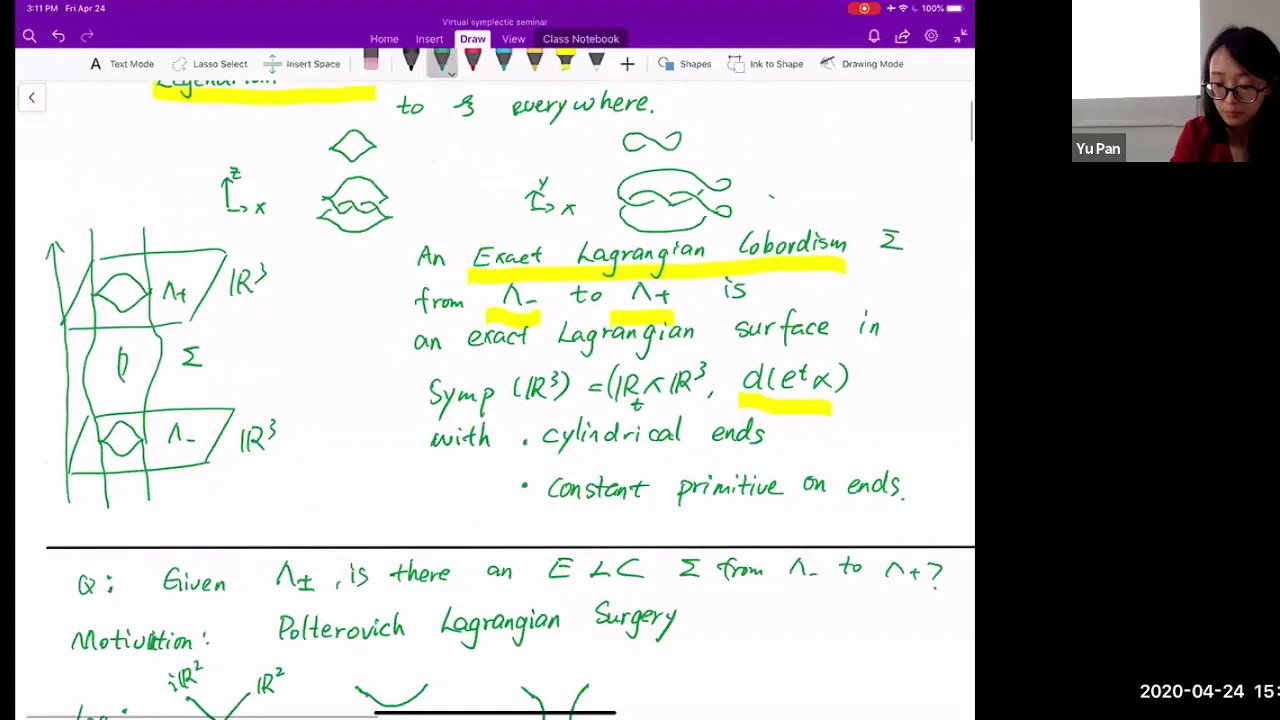 3:11 PM Fri Apr 24
100%
Virtual symplectic seminar
Home Insert Draw View Class Notebook
Text Mode Lasso Select Insert Space Shapes Ink to Shape Drawing Mode
Legendrian
to ξ everywhere.
z
x
y
x
An Exact Lagrangian Cobordism Σ
from Λ- to Λ+ is
an exact Lagrangian surface in
Symp (ℝ³) = (ℝ_t × ℝ³, d(e^t α)
with · cylindrical ends
· constant primitive on ends.
Λ+ ℝ³
Σ
Λ- ℝ³
Q: Given Λ±, is there an ELC Σ from Λ- to Λ+?
Motivation: Polterovich Lagrangian Surgery
iℝ² ℝ²
Yu Pan
2020-04-24 15: